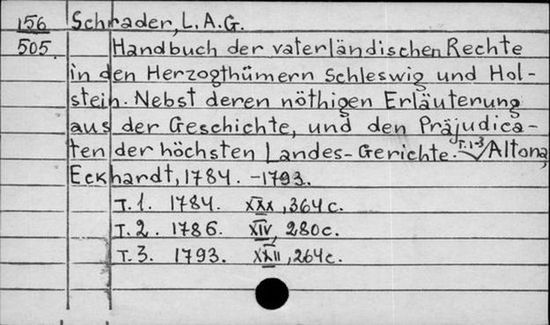 156 Schrader, L. A. G.
505. Handbuch der vaterländischen Rechte
in den Herzogthümern Schleswig und Hol-
stein. Nebst deren nöthigen Erläuterung
aus der Geschichte, und den Präjudica-
ten der höchsten Landes-Gerichte. T. 1-3 Altona,
Eckhardt, 1784. -1793.
T. 1. 1784. XXX, 364 c.
T. 2. 1786. XIV, 280 c.
T. 3. 1793. XXII, 264 c.